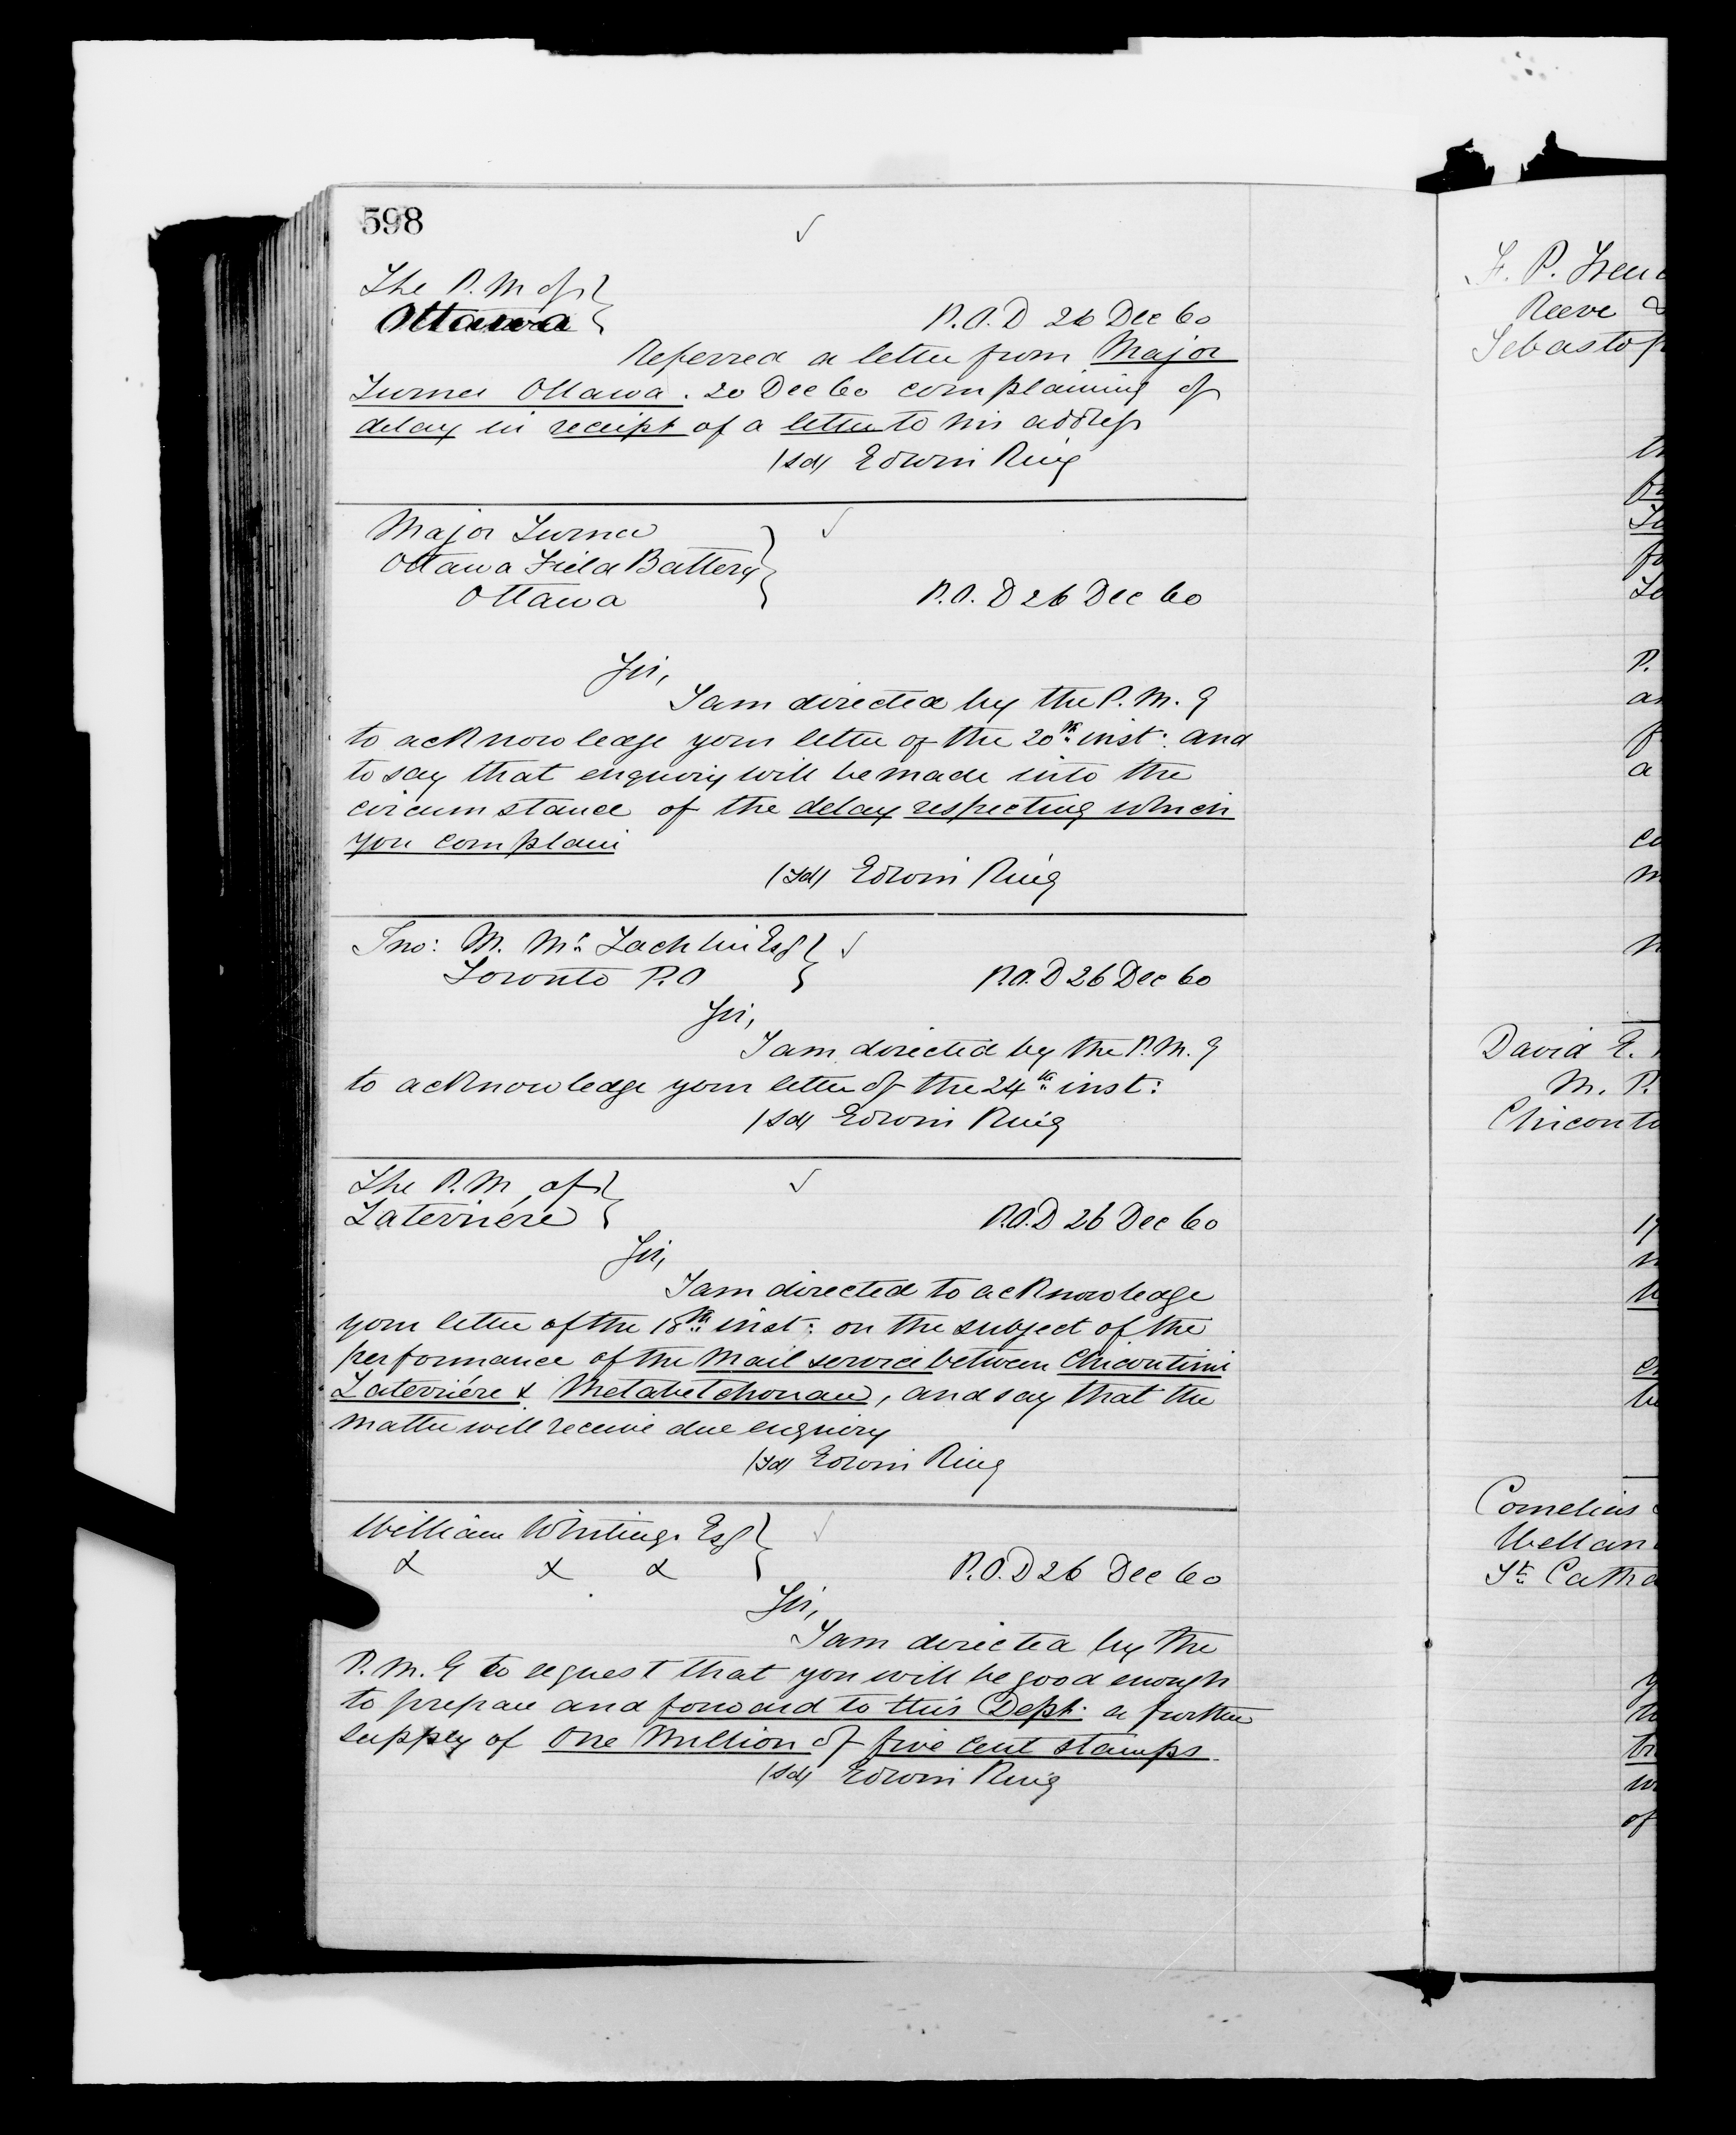 598
The P. M of
Ottawa
P. O. D 26 Dec 60
Referred a letter from Major
Turner Ottawa. 20 Dec 60 complaining of
delay in receipt of a letter to his address
(sd) Edwin King
Major Turner
Ottawa Field Battery
Ottawa
P. O. D 26 Dec 60
Sir,
I am directed by the P. M. G
to acknowledge your letter of the 20th inst: and
to say that enquiry will be made into the
circumstance of the delay respecting which
you complain
(sd) Edwin King
Jno: M. Mc Lachlin Esq
Toronto P.O
P.O. D 26 Dec 60
Sir,
I am directed by the P. M. G
to acknowledge your letter of the 24th inst:
(sd) Edwin King
The P. M. of
Laterriére
P.O.D 26 Dec 60
Sir,
I am directed to acknowledge
your letter of the 18th inst: on the subject of the
performance of the Mail service between Chicoutimi
Laterriére & Metabetchouan, and say that the
matter will receive due enquiry
(sd) Edwin King
William Whiting Esq
x x x
P. O. D 26 Dec 60
Sir,
I am directed by the
P. M. G to request that you will be good enough
to prepare and forward to this Dept: a further
supply of One Million of five cent stamps.
(sd) Edwin King
F. P.
Reeve
Sebastop
David E.
M. P.
Chicouti
Cornelius
Wellan
St. Catha